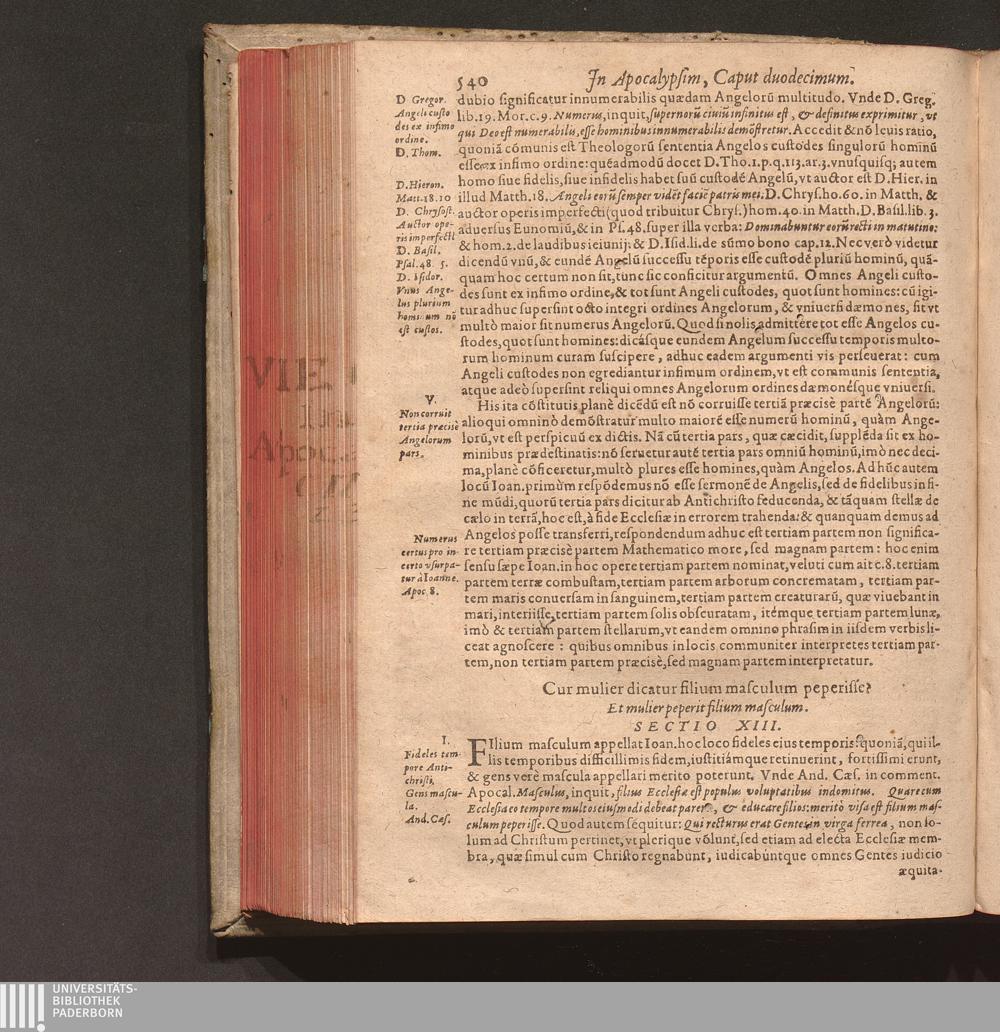 540
In Apocalypsim, Caput duodecimum.
D Gregor.
Angeli custo
des ex infimo
ordine.
D. Thom.
D. Hieron.
Matt. 18. 10
D. Chrysost.
Auctor ope-
ris imperfecti
D. Basil.
Psal. 48. 5.
D. Isidor.
Vnus Ange-
lus plurium
hominum nō
est custos.
dubio significatur innumerabilis quædam Angelorū multitudo. Vnde D. Greg.
lib. 19. Mor. c. 9. Numerus, inquit, supernorū ciuiū infinitus est, & definitus exprimitur, vt
qui Deo est numerabilis, esse hominibus innumerabilis demōstretur. Accedit & nō leuis ratio,
quoniā cōmunis est Theologorū sententia Angelos custodes singulorū hominū
esse ex infimo ordine: quēadmodū docet D. Tho. 1. p. q. 113. ar. 3. vnusquisq; autem
homo siue fidelis, siue infidelis habet suū custodē Angelū, vt auctor est D. Hier. in
illud Matth. 18. Angeli eorū semper vidēt faciē patris mei: D. Chrys. ho. 60. in Matth. &
auctor operis imperfecti (quod tribuitur Chrys.) hom. 40. in Matth. D. Basil. lib. 3.
aduersus Eunomiū, & in Ps. 48. super illa verba: Dominabuntur eorū recti in matutino:
& hom. 2. de laudibus ieiunij: & D. Isid. li. de sūmo bono cap. 12. Nec verò videtur
dicendū vnū, & eundē Angelū successu tēporis esse custodē pluriū hominū, quā-
quam hoc certum non sit, tunc sic conficitur argumentū. Omnes Angeli custo-
des sunt ex infimo ordine, & tot sunt Angeli custodes, quot sunt homines: cū igi-
tur adhuc supersint octo integri ordines Angelorum, & vniuersi dæmones, fit vt
multò maior sit numerus Angelorū. Quod si nolis admittere tot esse Angelos cu-
stodes, quot sunt homines: dicásque eundem Angelum successu temporis multo-
rum hominum curam suscipere, adhuc eadem argumenti vis perseuerat: cum
Angeli custodes non egrediantur infimum ordinem, vt est communis sententia,
atque adeò supersint reliqui omnes Angelorum ordines dæmonésque vniuersi.
V.
Non corruit
tertia præcisè
Angelorum
pars.
His ita cōstitutis planè dicēdū est nō corruisse tertiā præcisè partē Angelorū:
alioqui omninò demōstratur multo maiorē esse numerū hominū, quàm Ange-
lorū, vt est perspicuū ex dictis. Nā cū tertia pars, quæ cæcidit, supplēda sit ex ho-
minibus prædestinatis: nō seruetur autē tertia pars omniū hominū, imò nec deci-
ma, planè cōficeretur, multò plures esse homines, quàm Angelos. Ad hūc autem
locū Ioan. primùm respōdemus nō esse sermonē de Angelis, sed de fidelibus in fi-
ne mūdi, quorū tertia pars dicitur ab Antichristo seducenda, & tāquam stellæ de
cælo in terrā, hoc est, à fide Ecclesiæ in errorem trahenda: & quanquam demus ad
Angelos posse transferri, respondendum adhuc est tertiam partem non significa-
re tertiam præcisè partem Mathematico more, sed magnam partem: hoc enim
sensu sæpe Ioan. in hoc opere tertiam partem nominat, veluti cum ait c. 8. tertiam
partem terræ combustam, tertiam partem arborum concrematam, tertiam par-
tem maris conuersam in sanguinem, tertiam partem creaturarū, quæ viuebant in
mari, interiisse, tertiam partem solis obscuratam, itémque tertiam partem lunæ,
imò & tertiam partem stellarum, vt eandem omnino phrasim in iisdem verbis li-
ceat agnoscere: quibus omnibus in locis communiter interpretes tertiam par-
tem, non tertiam partem præcisè, sed magnam partem interpretatur.
Numerus
certus pro in-
certo vsurpa-
tur à Ioanne.
Apoc. 8.
Cur mulier dicatur filium masculum peperisse?
Et mulier peperit filium masculum.
SECTIO XIII.
I.
Fideles tem-
pore Anti-
christi,
Gens mascu-
la.
And. Cæs.
FIlium masculum appellat Ioan. hoc loco fideles eius temporis: quoniā, qui il-
lis temporibus difficillimis fidem, iustitiámque retinuerint, fortissimi erunt,
& gens verè mascula appellari merito poterunt. Vnde And. Cæs. in comment.
Apocal. Masculus, inquit, filius Ecclesiæ est populus voluptatibus indomitus. Quare cum
Ecclesia eo tempore multos eiusmodi debeat parere, & educare filios: meritò visa est filium mas-
culum peperisse. Quod autem sequitur: Qui recturus erat Gentes in virga ferrea, non so-
lum ad Christum pertinet, vt plerique volunt, sed etiam ad electa Ecclesiæ mem-
bra, quæ simul cum Christo regnabunt, iudicabúntque omnes Gentes iudicio
æquita-
UNIVERSITÄTS-
BIBLIOTHEK
PADERBORN